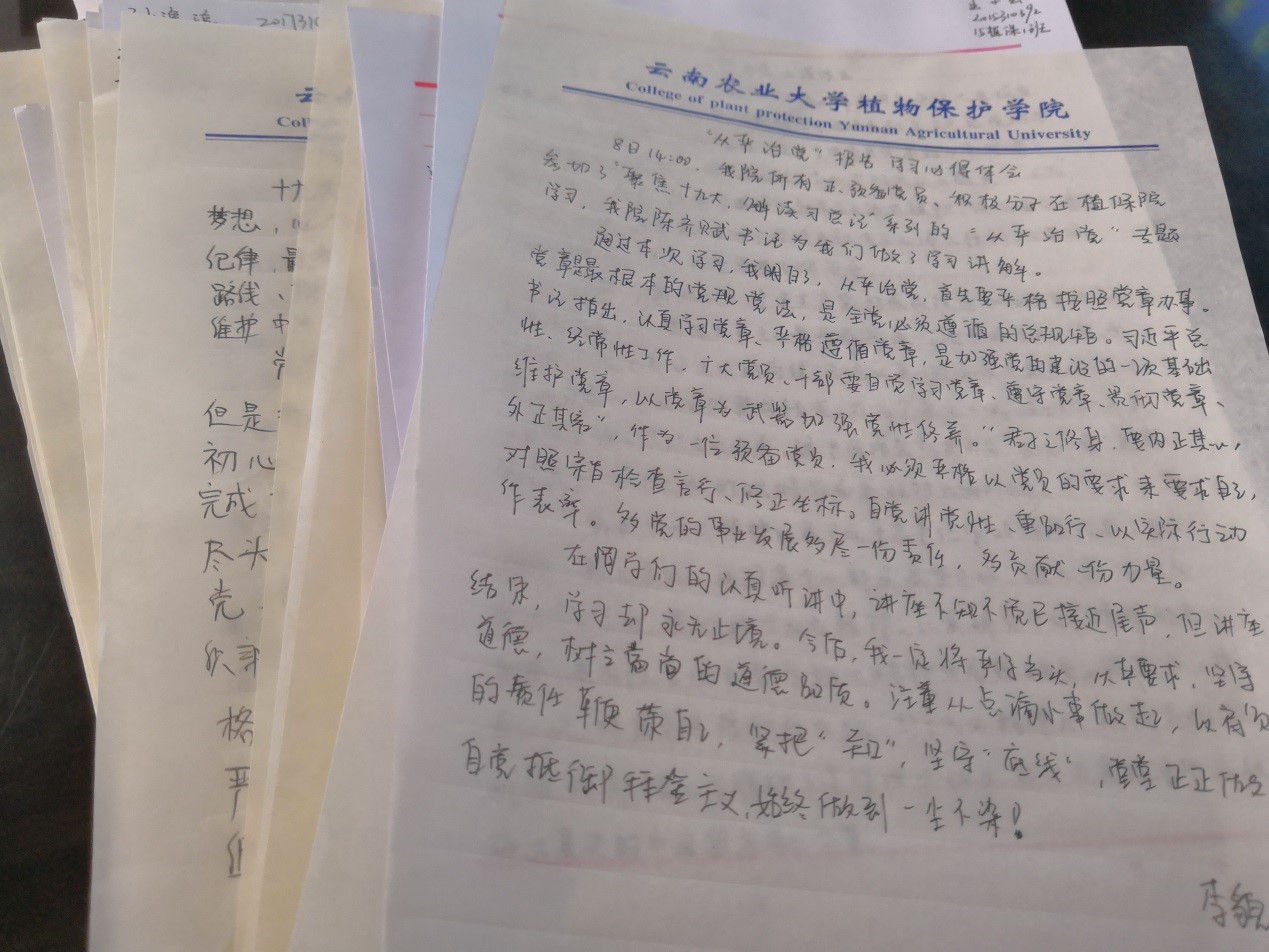 201731
2015310692
15植保1班
云南农业大学植物保护学院
College of plant protection Yunnan Agricultural University
"从严治党"报告学习心得体会
8日14:00，我院所有正、预备党员、积极分子在植保院
参加了"聚焦十九大，解读习总记"系列的"从严治党"专题
学习，我院陈齐斌书记为我们做了学习讲解。
通过本次学习，我明白了，从严治党，首先要严格按照党章办事。
党章是最根本的党规党法，是全党必须遵循的总规矩。习近平总
书记指出，认真学习党章、严格遵循党章，是加强党的建设的一项基础
性、经常性工作，广大党员、干部要自觉学习党章、遵守党章、贯彻党章、
维护党章，以党章为武器加强党性修养。"君子之修身，要内正其心，
外正其容"，作为一位预备党员，我必须严格以党员的要求来要求自己，
对照宗旨检查言行、修正坐标。自觉讲党性、重品行、以实际行动
作表率。多党的事业发展多尽一份责任，多贡献一份力量。
在同学们的认真听讲中，讲座不知不觉已接近尾声，但讲座
结束，学习却永无止境。今后，我一定将严字当头，从严要求，坚守
道德，树立高尚的道德品质。注重从点滴小事做起，以肩负
的责任鞭策自己，紧把"关口"，坚守"底线"，堂堂正正做
自觉抵御拜金主义，始终做到一尘不染！
李
云
Col
十九
梦想，
纪律，
路线、
维护 中
党
但是
初心
完成
尽头
党
积
格
严